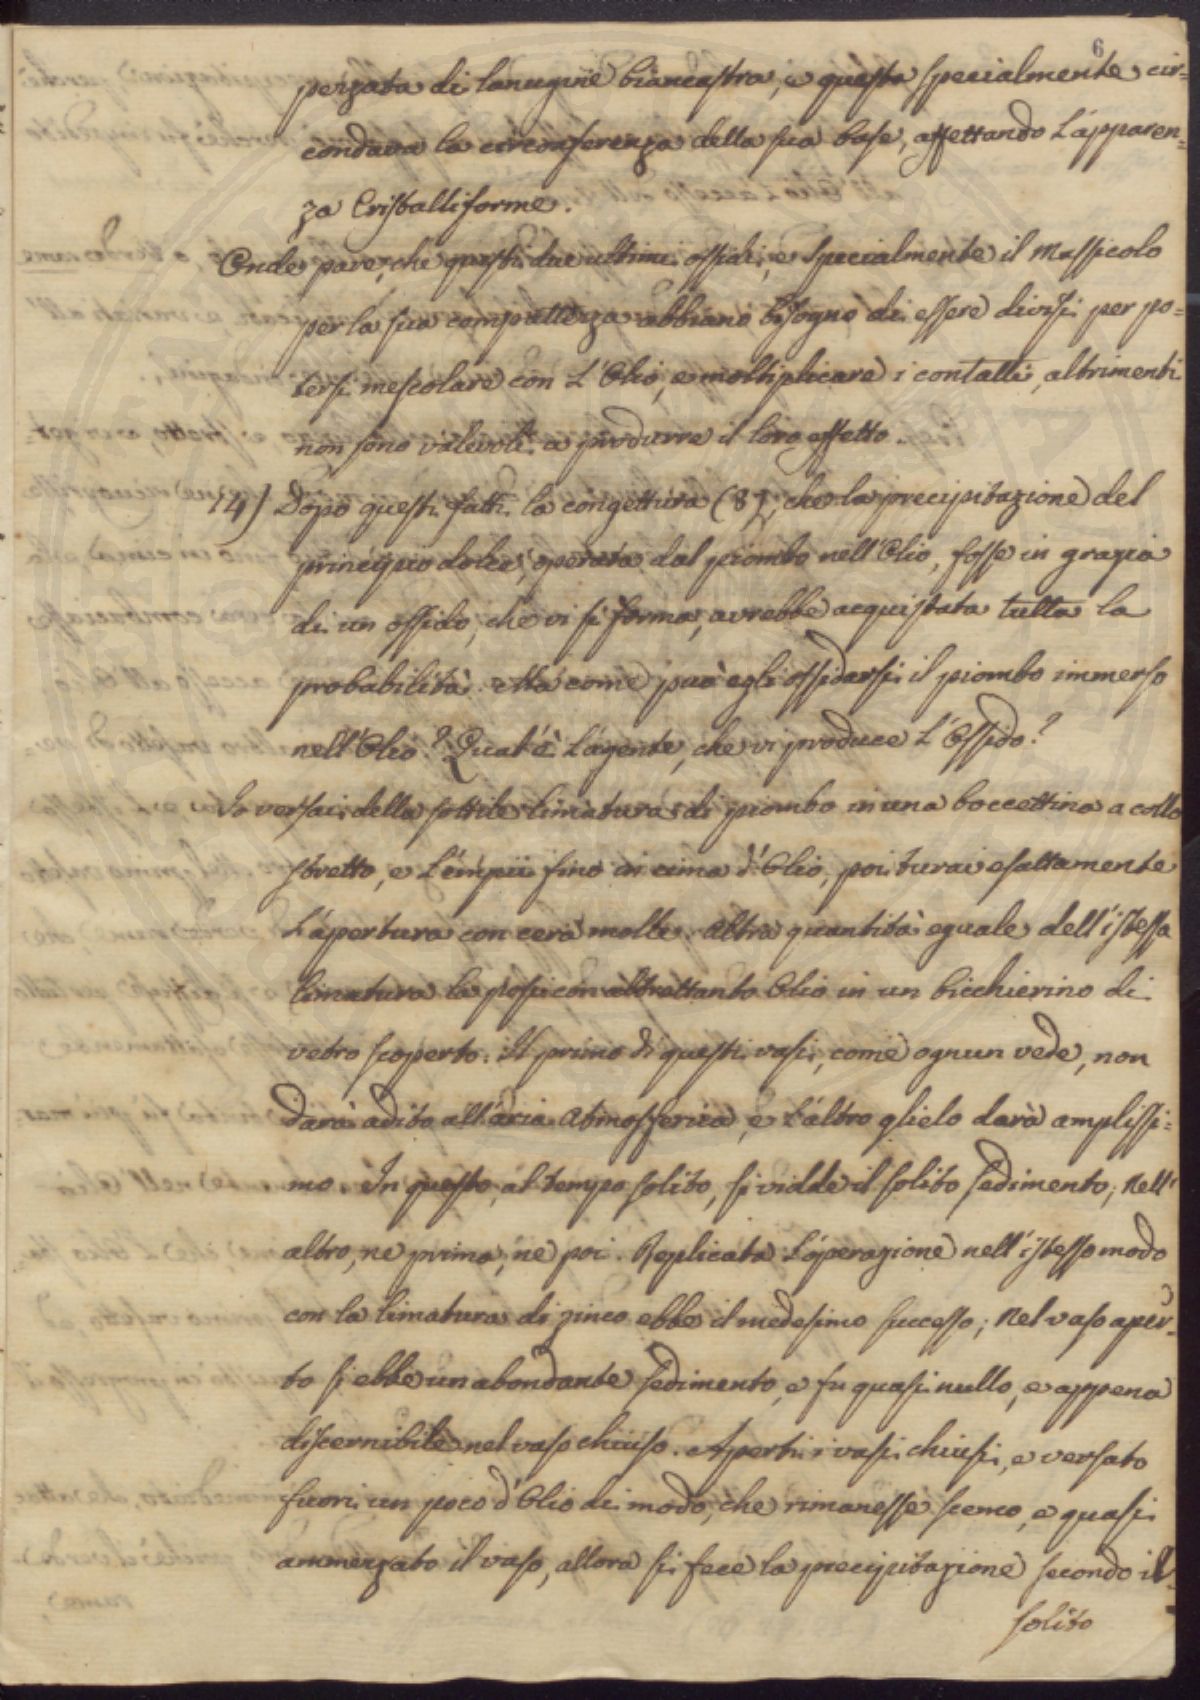 6
perzata di lanugine biancastra, e questa specialmente cir=
condava la circonferenza della sua base, affettando l'apparen=
za Cristalliforme.
Onde pare, che questi due ultimi ossidi, e specialmente il Massicolo
per la sua compattezza abbiano bisogno di essere divisi per po=
tersi mescolare con l'Olio, e moltiplicare i contatti, altrimenti
non sono valevoli a produrre il loro effetto.
14) Dopo questi fatti la congettura (8), che la precipitazione del
principio dolce, operata dal piombo nell'Olio, fosse in grazia
di un ossido, che vi si forma, avrebbe acquistata tutta la
probabilità. Ma come può egli ossidarsi il piombo immerso
nell'Olio? Qual'è l'agente, che vi produce l'Ossido?
Io versai della sottile limatura di piombo in una boccettina a collo
stretto, e l'empii fino in cima d'Olio, poi turai esattamente
l'apertura con cera molle. Altra quantità eguale dell'istessa
limatura la posi con altrettanto Olio in un bicchierino di
vetro scoperto. Il primo di questi vasi, come ognun vede, non
darà adito all'aria Atmosferica, e l'altro glielo darà amplissi=
mo. In questo, al tempo solito, si vidde il solito sedimento; Nell'
altro, ne prima, ne poi. Replicata l'operazione nell'istesso modo
con la limatura di zinco ebbe il medesimo successo; Nel vaso aper=
to si ebbe un abondante sedimento, e fu quasi nullo, e appena
discernibile nel vaso chiuso. Aperti i vasi chiusi, e versato
fuori un poco d'Olio di modo, che rimanesse scemo, e quasi
ammezzato il vaso, allora si fece la precipitazione secondo il
solito